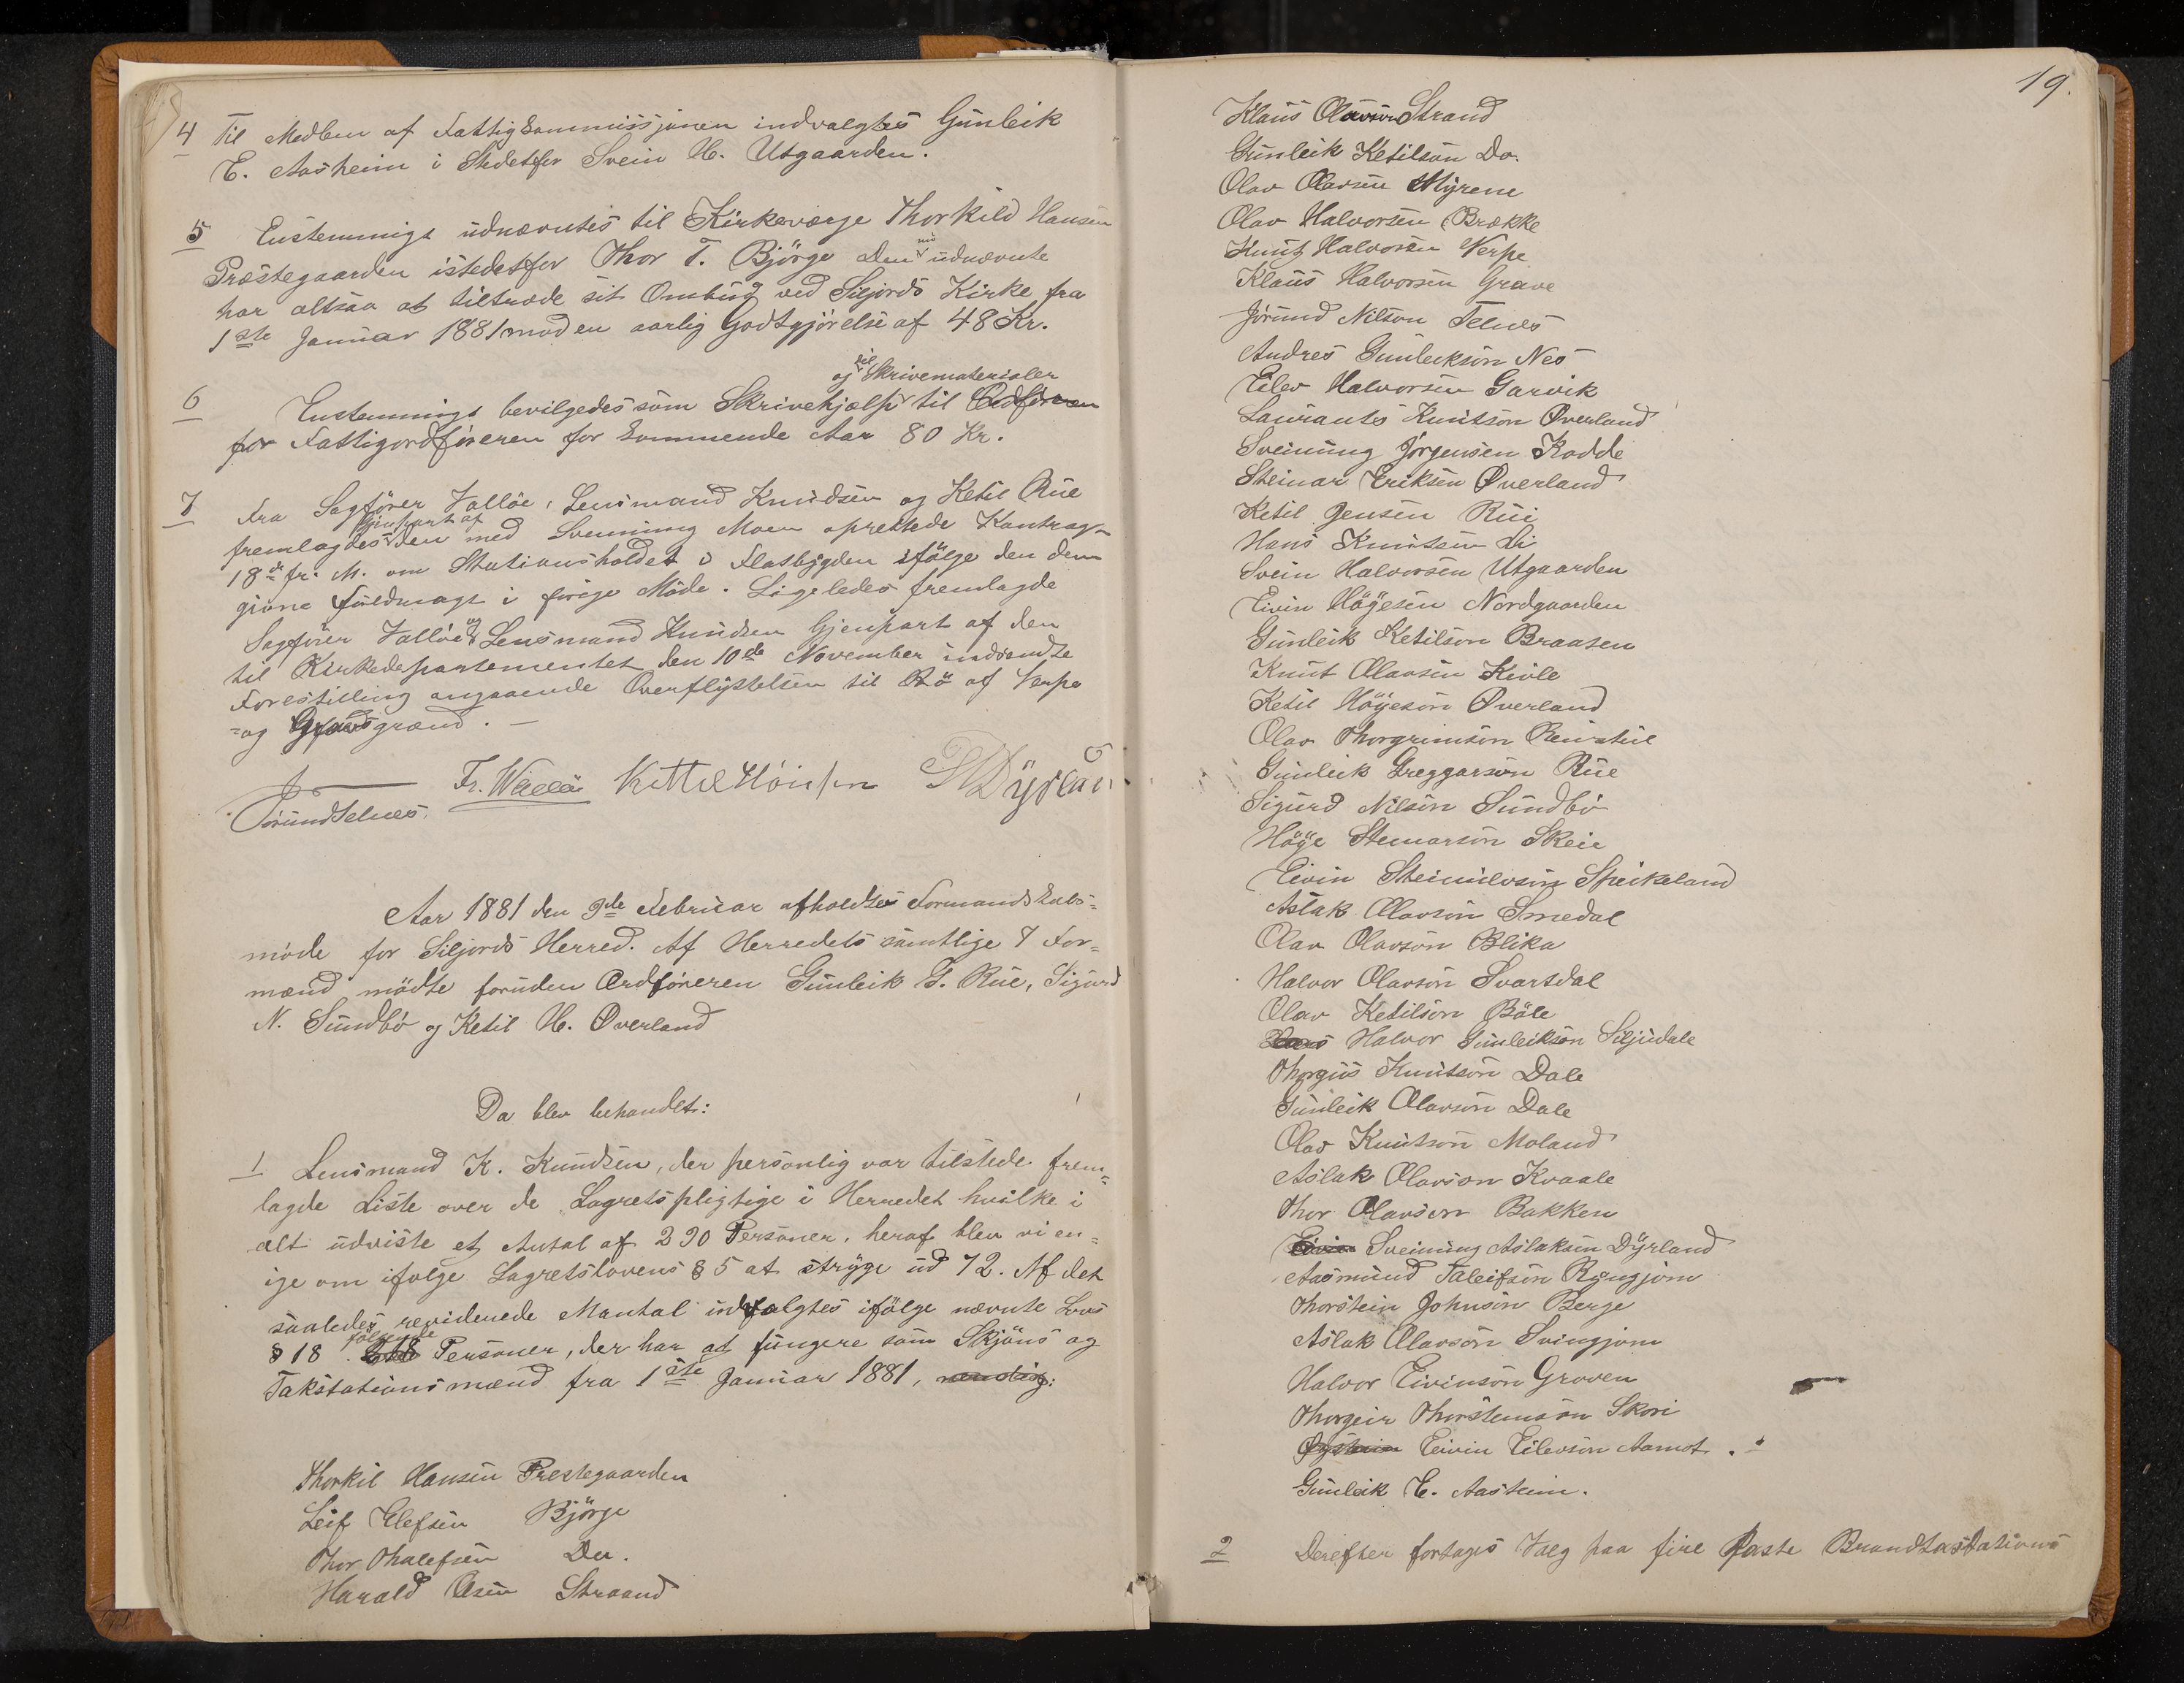 4 Til Medlem af Fattigkommissjonen indvalgtes Gunleik
E. Aasheim i Stedetfor Svein H. Utgaarden.
5 Enstemmigt udnævntes til Kirkeværge Thorkild Hansen
Præstegaarden istedetfor Thor T. Björge den nu udnævnte
har altsaa at tiltræde sit Ombud ved Siljords Kirke fra
1ste Januar 1881 mod en aarlig Godtgjörelse af 48 Kr.
og til Skrivematerialer
6 Enstemmigt bevilgedes som Skrivehjælp til Ordföreren
for Fattigordföreren for kommende Aar 80 Kr.
7 Fra Sagförer Valløe, Lensmand Knudsen og Ketil Rue
Gjenpart af
fremlagdes den med Svenning Moen oprettede Kontrag-
18de fr. M. om Stationsholdet i Flatbygden ifölge den dem
givne Fuldmagt i forige Möde. Ligeledes fremlagde
Sagförer Valløe og Lensmand Knudsen Gjenpart af den
til Kirkedepartementet den 10de November indsendte
Forestilling angaaende Overflyttelsen til Bö af Verpe
-og Gravsgrænd. –
Jörund Telnes. Fr. Walløe Kittel Höiesen Dyrlan
Aar 1881 den 9de Februar afholdtes Formandskabs=
möde for Siljords Herred. Af Herredets samtlige 8 For=
mænd mödte foruden Ordföreren Gunleik G. Rue, Sigurd
N. Sundbö og Ketil H. Øverland
Da blev behandlet:
1 Lensmand K. Knudsen, der personlig var tilstede frem=
lagde Liste over de Lagretspligtige i Herredet hvilke i
alt udviste et Antal af 290 Personer, heraf blev vi en=
ige om ifölge Lagretslovens § 5 at stryge ud 72. Af det
saaledes reviderede Mantal indvalgtes ifölge nævnte Lovs
§ 18 følgende Personer, der har at fungere som Skjöns og
Takstationsmænd fra 1ste Januar 1881, nemlig:
Thorkil Hansen Prestegaarden
Leif Elefsen Björge
Thor Thalefsen Do.
Harald Olsen Straand
19.
Klaus Olavson Strand
Gunleik Ketilson Do.
Olav Olavsen Myrene
Olav Halvorsen Brække
Knut Halvorsen Verpe
Klaus Halvorsen Grave
Jörund Nilson Telnes
Andres Gunleikson Nes
Eilev Halvorsen Garvik
Laurantes Knutson Øverland
Sveinung Jörgensen Kodde
Steinar Eriksen Øverland
Ketil Jensen Rui
Hans Knutsen Li
Svein Halvorsen Utgaarden
Eivin Höyesen Nordgaarden
Gunleik Ketilson Braasen
Knut Olavsen Kivle
Ketil Höyeson Øverland
Olav Thorgrimson Reinstul
Gunleik Greggarson Rue
Sigurd Nilson Sundbö
Höye Steinarson Skeie
Eivin Steinulvson Speikeland
Aslak Olavson Smedal
Olav Olavson Blika
Halvor Olavson Svartdal
Olav Ketilson Böle
Halvor Gunleikson Siljudale
Thorgus Knutson Dale
Gunleik Olavson Dale
Olav Knutson Moland
Aslak Olavson Kvaale
Thor Olavson Bakken
Eivin Sveinung Aslaksen Dyrland
Aasmund Taleifson Ryngjom
Thorstein Johnson Berge
Aslak Olavson Svingjom
Halvor Eivinson Groven
Thorgeir Thorsteinson Skori
Øystein Eivin Eilevson Aamot.
Gunleik E. Aasheim.
2 Derefter fortoges Valg paa fire faste Brandtaxtations